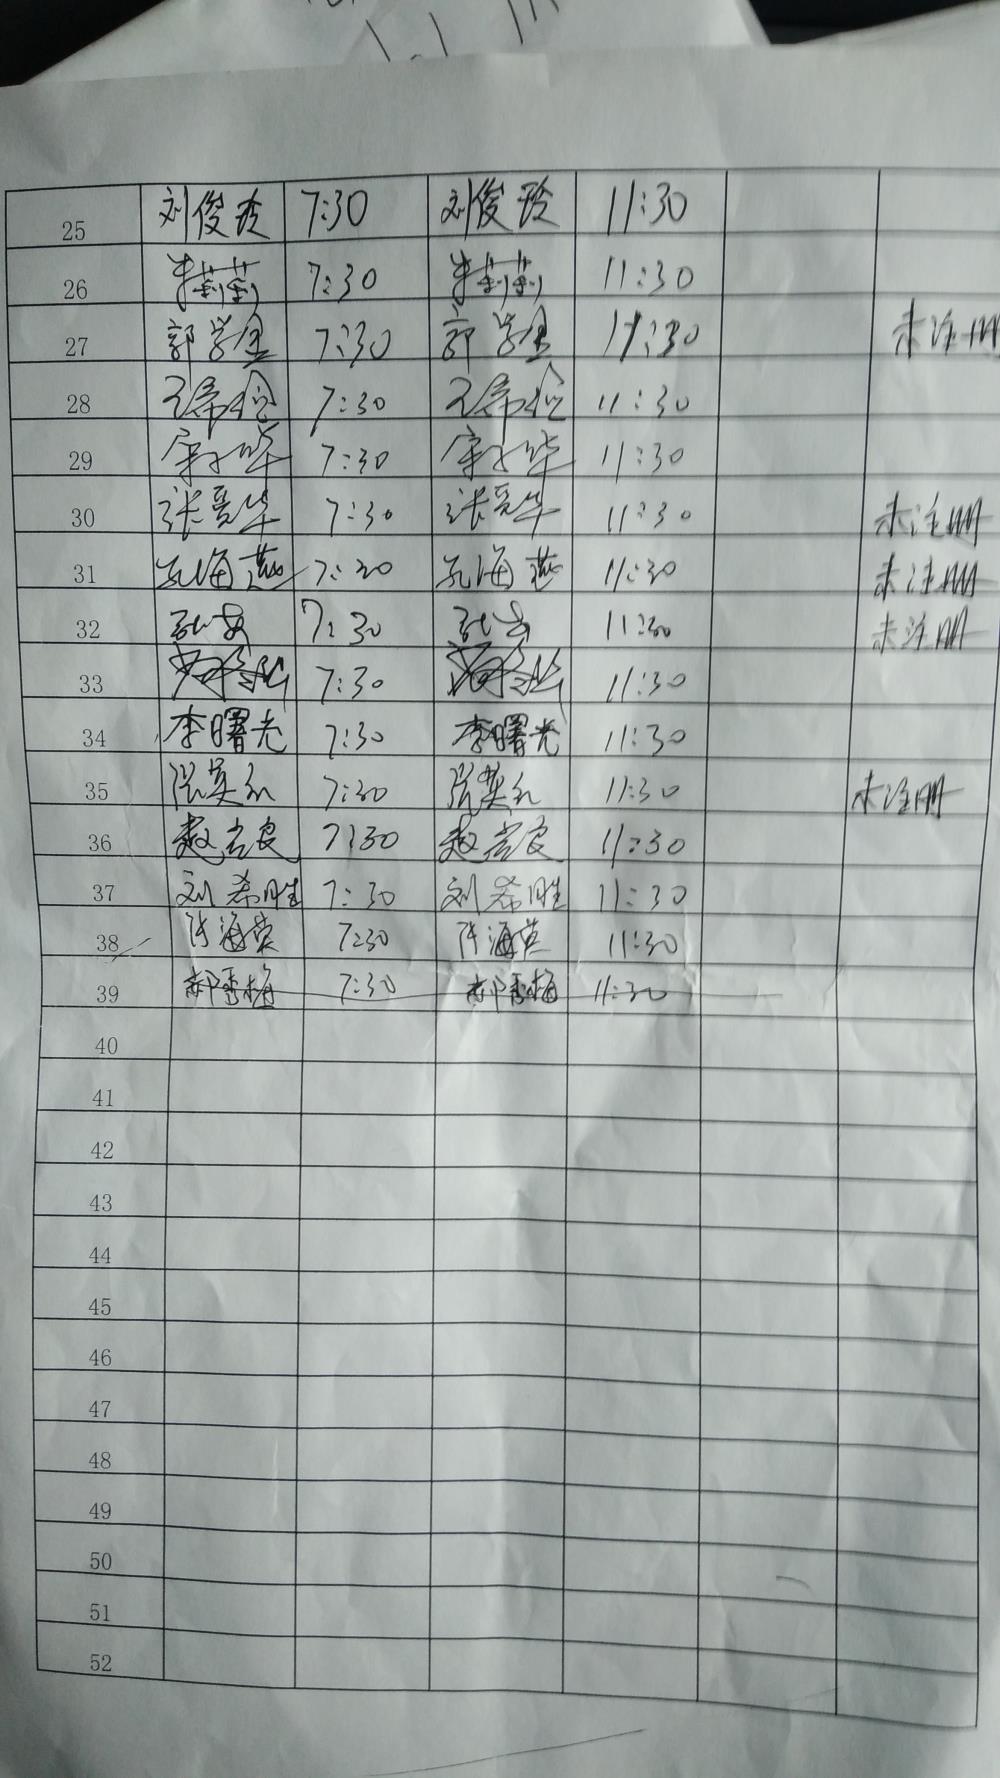 25 刘俊玲 7:30 刘俊玲 11:30
26 朱莉莉 7:30 朱莉莉 11:30
27 郭学 7:30 郭学 11:30 未注册
28 7:30 11:30
29 7:30 11:30
30 张爱华 7:30 张爱华 11:30 未注册
31 孔海燕 7:30 孔海燕 11:30 未注册
32 7:30 11:30 未注册
33 7:30 11:30
34 李曙光 7:30 李曙光 11:30
35 张英 7:30 张英 11:30 未注册
36 赵 良 7:30 赵 良 11:30
37 刘希胜 7:30 刘希胜 11:30
38 海英 7:30 海英 11:30
39 郝秀梅 7:30 郝秀梅 11:30
40
41
42
43
44
45
46
47
48
49
50
51
52